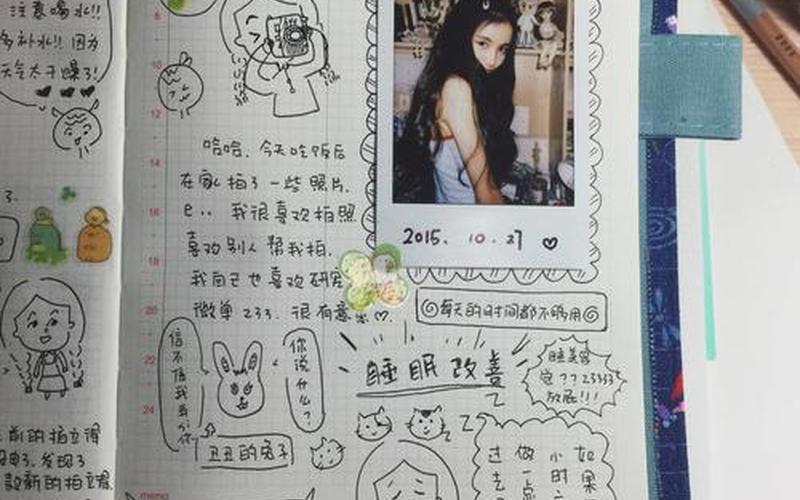 注意喝水!!
多补水!! 因为
天气太干燥了!
3.
前的拍立得
发现了
款新的拍立
6
8
10
12
14
16
18
20
22
24
memo
哈哈, 今天吃饭后
在家拍了一些照片,
e.. 我很喜欢拍照
喜欢别人帮我拍,
我自己也喜欢研究
微单 233. 很有意思♡.
2015. 10. 27 ♡
每天的时间都不够用
信不信我
你说什么?
丑丑的兔子
睡眠改善
睡美容
23333
放屁!!!
z
z z
如果
小时
做一点
过去